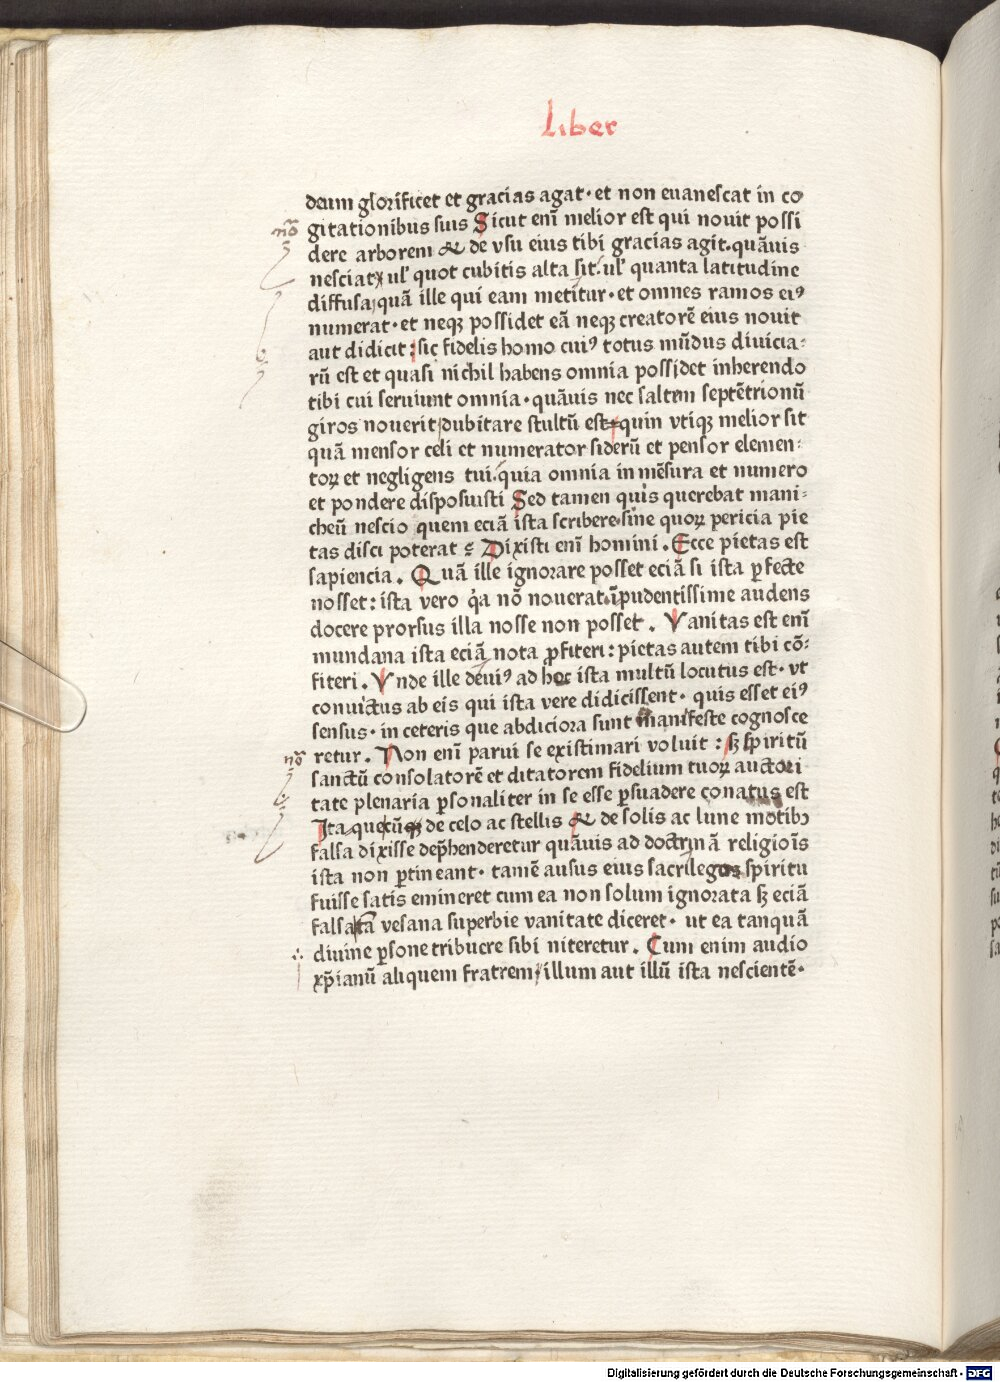 Liber
deum glorificet et gracias agat· et non euanescat in co
gitationibus suis Sicut enī melior est qui nouit possi
dere arborem & de vsu eius tibi gracias agit·quāuis
nesciat ul' quot cubitis alta sit· ul' quanta latitudine
diffusa quā ille qui eam metitur· et omnes ramos eiꝰ
numerat· et neqꝫ possidet eā neqꝫ creatorē eius nouit
aut didicit: sic fidelis homo cuiꝰ totus mūdus diuicia-
rū est et quasi nichil habens omnia possidet inherendo
tibi cui seruiunt omnia· quāuis nec saltem septētrionū
giros nouerit dubitare stultū est quin vtiqꝫ melior sit
quā mensor celi et numerator siderū et pensor elemen-
toꝝ et negligens tui· quia omnia in mēsura et numero
et pondere disposuisti Sed tamen quis querebat mani-
cheū nescio quem eciā ista scribere sine quoꝝ pericia pie
tas disci poterat Dixisti enī homini. Ecce pietas est
sapiencia. Quā ille ignorare posset eciā si ista ꝑfecte
nosset: ista vero q̇a nō nouerat īpudentissime audens
docere prorsus illa nosse non posset. Vanitas est enī
mundana ista eciā nota ꝓfiteri: pietas autem tibi cō-
fiteri. Vnde ille deuiꝰ ad hoc ista multū locutus est· vt
conuictus ab eis qui ista vere didicissent· quis esset eiꝰ
sensus· in ceteris que abdiciora sunt manifeste cognosce
nō retur. Non enī parui se existimari voluit: sꝫ spiritū
sanctū consolatorē et ditatorem fidelium tuoꝝ auctori
tate plenaria ꝑsonaliter in se esse ꝑsuadere conatus est
Ita de celo ac stellis & de solis ac lune motibꝫ
falsa dixisse dep̄henderetur quāuis ad doctrinā religiōis
ista non ꝑtineant· tamē ausus eius sacrilegos spiritu
fuisse satis emineret cum ea non solum ignorata sꝫ eciā
falsa tā vesana superbie vanitate diceret· ut ea tanquā
diuine ꝑsone tribuere sibi niteretur. Cum enim audio
xp̄ianū aliquem fratrem illum aut illū ista nescientē·
nō
Digitalisierung gefördert durch die Deutsche Forschungsgemeinschaft - DFG